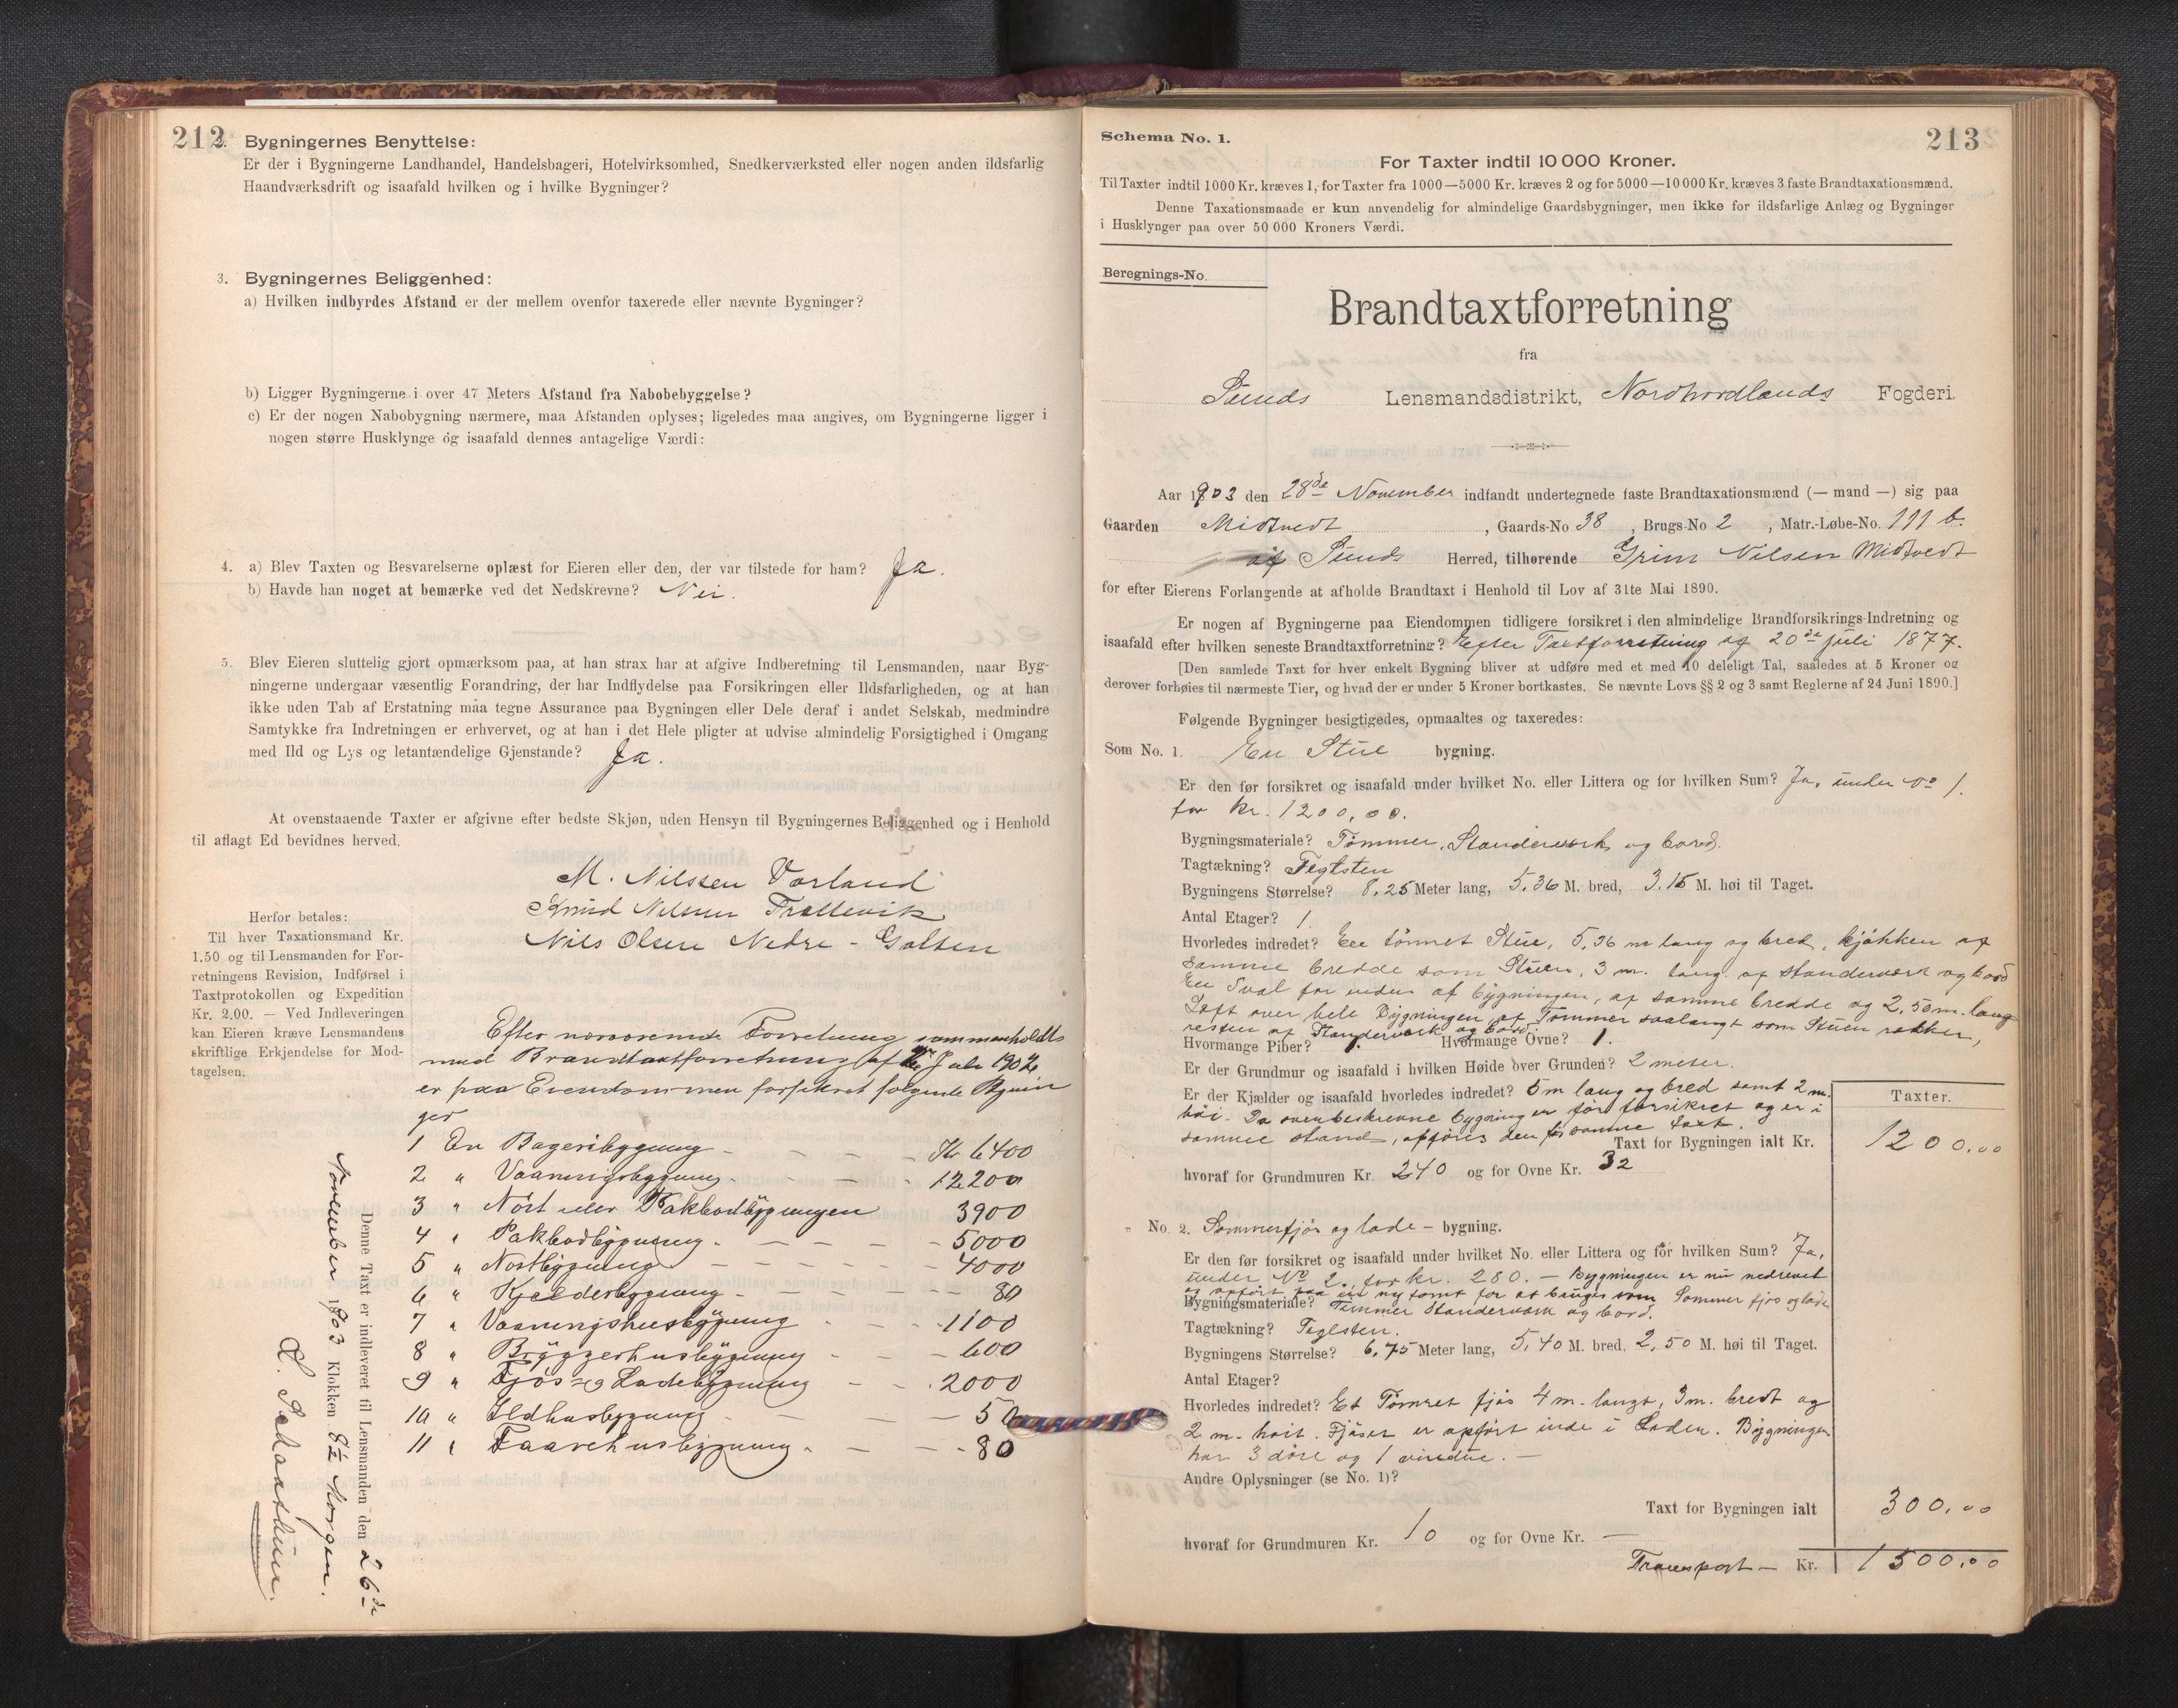 212
2. Bygningernes Benyttelse:
Er der i Bygningerne Landhandel, Handelsbageri, Hotelvirksomhed, Snedkerværksted eller nogen anden ildsfarlig
Haandværksdrift og isaafald hvilken og i hvilke Bygninger?
3. Bygningernes Beliggenhed:
a) Hvilken indbyrdes Afstand er der mellem ovenfor taxerede eller nævnte Bygninger?
b) Ligger Bygningerne i over 47 Meters Afstand fra Nabobebyggelse?
c) Er der nogen Nabobygning nærmere, maa Afstanden oplyses; ligeledes maa angives, om Bygningerne ligger i
nogen større Husklynge og isaafald dennes antagelige Værdi:
4. a) Blev Taxten og Besvarelserne oplæst for Eieren eller den, der var tilstede for ham? Ja.
b) Havde han noget at bemærke ved det Nedskrevne? Nei.
5. Blev Eieren sluttelig gjort opmærksom paa, at han strax har at afgive Indberetning til Lensmanden, naar Byg-
ningerne undergaar væsentlig Forandring, der har Indflydelse paa Forsikringen eller Ildsfarligheden, og at han
ikke uden Tab af Erstatning maa tegne Assurance paa Bygningen eller Dele deraf i andet Selskab, medmindre
Samtykke fra Indretningen er erhvervet, og at han i det Hele pligter at udvise almindelig Forsigtighed i Omgang
med Ild og Lys og letantændelige Gjenstande? Ja.
At ovenstaaende Taxter er afgivne efter bedste Skjøn, uden Hensyn til Bygningernes Beliggenhed og i Henhold
til aflagt Ed bevidnes herved.
M. Nilssen Vorland
Knud Nilsen Trællevik
Nils Olsen Nedre-Golten
Herfor betales:
Til hver Taxationsmand Kr.
1.50 og til Lensmanden for For-
retningens Revision, Indførsel i
Taxtprotokollen og Expedition
Kr. 2.00. — Ved Indleveringen
kan Eieren kræve Lensmandens
skriftlige Erkjendelse for Mod-
tagelsen.
Efter nærværende Forretning sammenholdts
med Brandtaxtforretning af Juli 1902
er paa Eiendommen forsikret følgende Bygnin
ger
1 En Bageribygning - - - - Kr 6400
2 " Vaaningsbygning - - - - 12200
3 " Nöst eller Pakbodbygningen 3900
4 " Pakbodbygning - - - - 5000
5 " Nostbygning - - - - 4000
6 " Kjelderbygning - - - - 80
7 " Vaaningshusbygning - - - 1100
8 " Bryggerhusbygning - - 600
9 " Fjös- og Ladebygning - - 2000
10 " Ildhusbygning - - - 50
11 " Faarehusbygning - - - 80
Denne Taxt er indleveret til Lensmanden den 26de
November 1903 Klokken 8½ Morgen.
213
Schema No. 1.
For Taxter indtil 10 000 Kroner.
Til Taxter indtil 1000 Kr. kræves 1, for Taxter fra 1000—5000 Kr. kræves 2 og for 5000—10 000 Kr. kræves 3 faste Brandtaxationsmænd.
Denne Taxationsmaade er kun anvendelig for almindelige Gaardsbygninger, men ikke for ildsfarlige Anlæg og Bygninger
i Husklynger paa over 50 000 Kroners Værdi.
Beregnings-No.
Brandtaxtforretning
fra
Sunds Lensmandsdistrikt, Nordhordlands Fogderi.
Aar 1903 den 28de November indfandt undertegnede faste Brandtaxationsmænd (— mand —) sig paa
Gaarden Midtvedt, Gaards-No 38, Brugs-No 2, Matr.-Løbe-No. 111 b.
af Sunds Herred, tilhørende Grim Nilsen Midtvedt
for efter Eierens Forlangende at afholde Brandtaxt i Henhold til Lov af 31te Mai 1890.
Er nogen af Bygningerne paa Eiendommen tidligere forsikret i den almindelige Brandforsikrings-Indretning og
isaafald efter hvilken seneste Brandtaxtforretning? Efter Taxtforretning af 20de juli 1877.
[Den samlede Taxt for hver enkelt Bygning bliver at udføre med et med 10 deleligt Tal, saaledes at 5 Kroner og
derover forhøies til nærmeste Tier, og hvad der er under 5 Kroner bortkastes. Se nævnte Lovs §§ 2 og 3 samt Reglerne af 24 Juni 1890.]
Følgende Bygninger besigtigedes, opmaaltes og taxeredes:
Som No. 1. En Stue bygning.
Er den før forsikret og isaafald under hvilket No. eller Littera og for hvilken Sum? Ja, under No 1.
for kr. 1200,00.
Bygningsmateriale? Tømmer, Standerværk og bord.
Tagtækning? Teglsten
Bygningens Størrelse? 8,25 Meter lang, 5,36 M. bred, 3.15 M. høi til Taget.
Antal Etager? 1.
Hvorledes indredet? En tømret Stue, 5,36 m lang og bred, kjøkken af
samme bredde som Stuen, 3 m. lang. af standerværk og bord
En Sval for enden af bygningen, af samme bredde og 2,50 m. lang
Loft over hele Bygningen af Tømmer saalangt som Stuen rækker,
resten af Standerværk og bord.
Hvormange Piber? 1. Hvormange Ovne? 1.
Er der Grundmur og isaafald i hvilken Høide over Grunden? 2 meter.
Er der Kjælder og isaafald hvorledes indredet? 5 m lang og bred samt 2 m.
høi. Da ovenbeskrevne bygning er før forsikret og er i
samme stand, opføres den for samme taxt.
Taxter.
Taxt for Bygningen ialt Kr. 1200.00
hvoraf for Grundmuren Kr. 240 og for Ovne Kr. 32
" No. 2. Sommerfjøs og lade - bygning.
Er den før forsikret og isaafald under hvilket No. eller Littera og for hvilken Sum? Ja,
under No 2, for kr. 280. — Bygningen er nu nedrevet
og opført paa en ny tomt for at bruges som Sommer fjøs og lade
Bygningsmateriale? Tømmer Standerværk og bord.
Tagtækning? Teglsten.
Bygningens Størrelse? 6,75 Meter lang, 5,40 M. bred, 2,50 M. høi til Taget.
Antal Etager?
Hvorledes indredet? Et Tømret fjøs 4 m. langt, 3 m. bredt og
2 m. høit. Fjøset er opført inde i Laden. Bygningen
har 3 døre og 1 vindue. —
Andre Oplysninger (se No. 1)?
Taxt for Bygningen ialt 300.00
hvoraf for Grundmuren Kr. 10 og for Ovne Kr. —
Transport — Kr. 1500.00